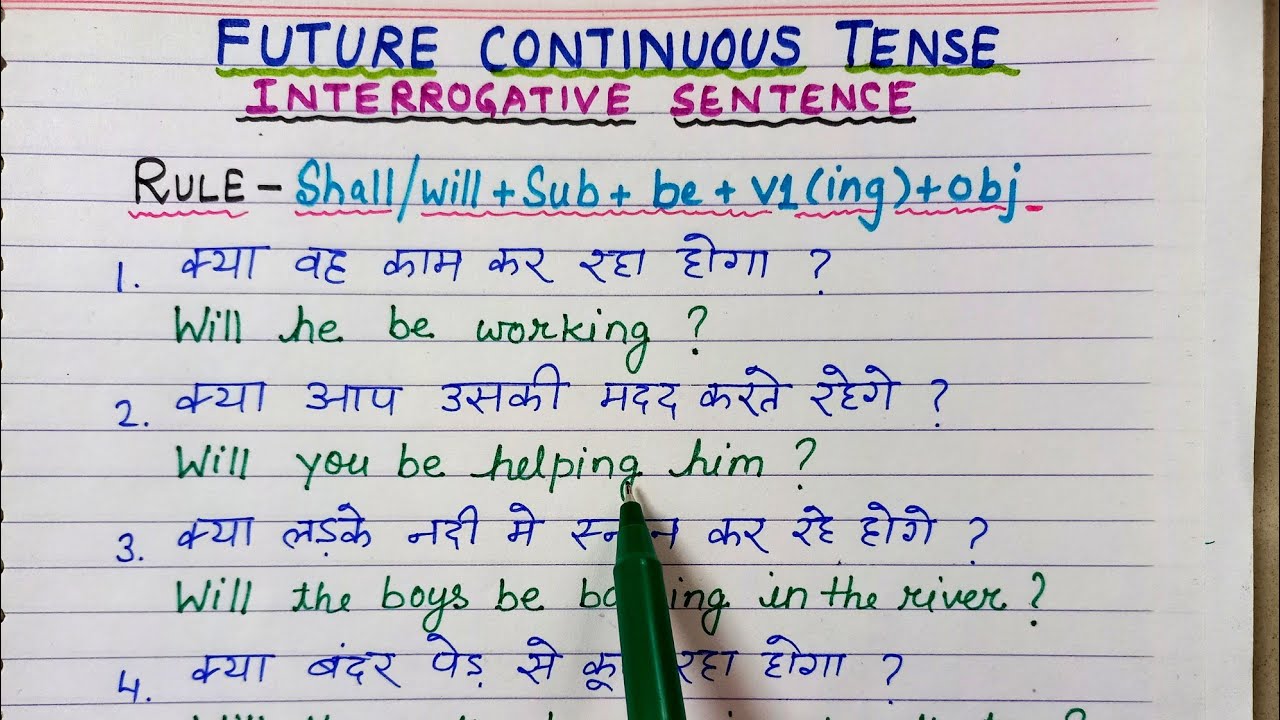 FUTURE CONTINUOUS TENSE
INTERROGATIVE SENTENCE
RULE - Shall/will + Sub + be + v1(ing) + obj
1. क्या वह काम कर रहा होगा ?
Will he be working ?
2. क्या आप उसकी मदद करते रहेगे ?
Will you be helping him ?
3. क्या लड़के नदी मे कर रहे होगे ?
Will the boys be in the river ?
4. क्या बंदर पेड़ से रहा होगा ?
Will